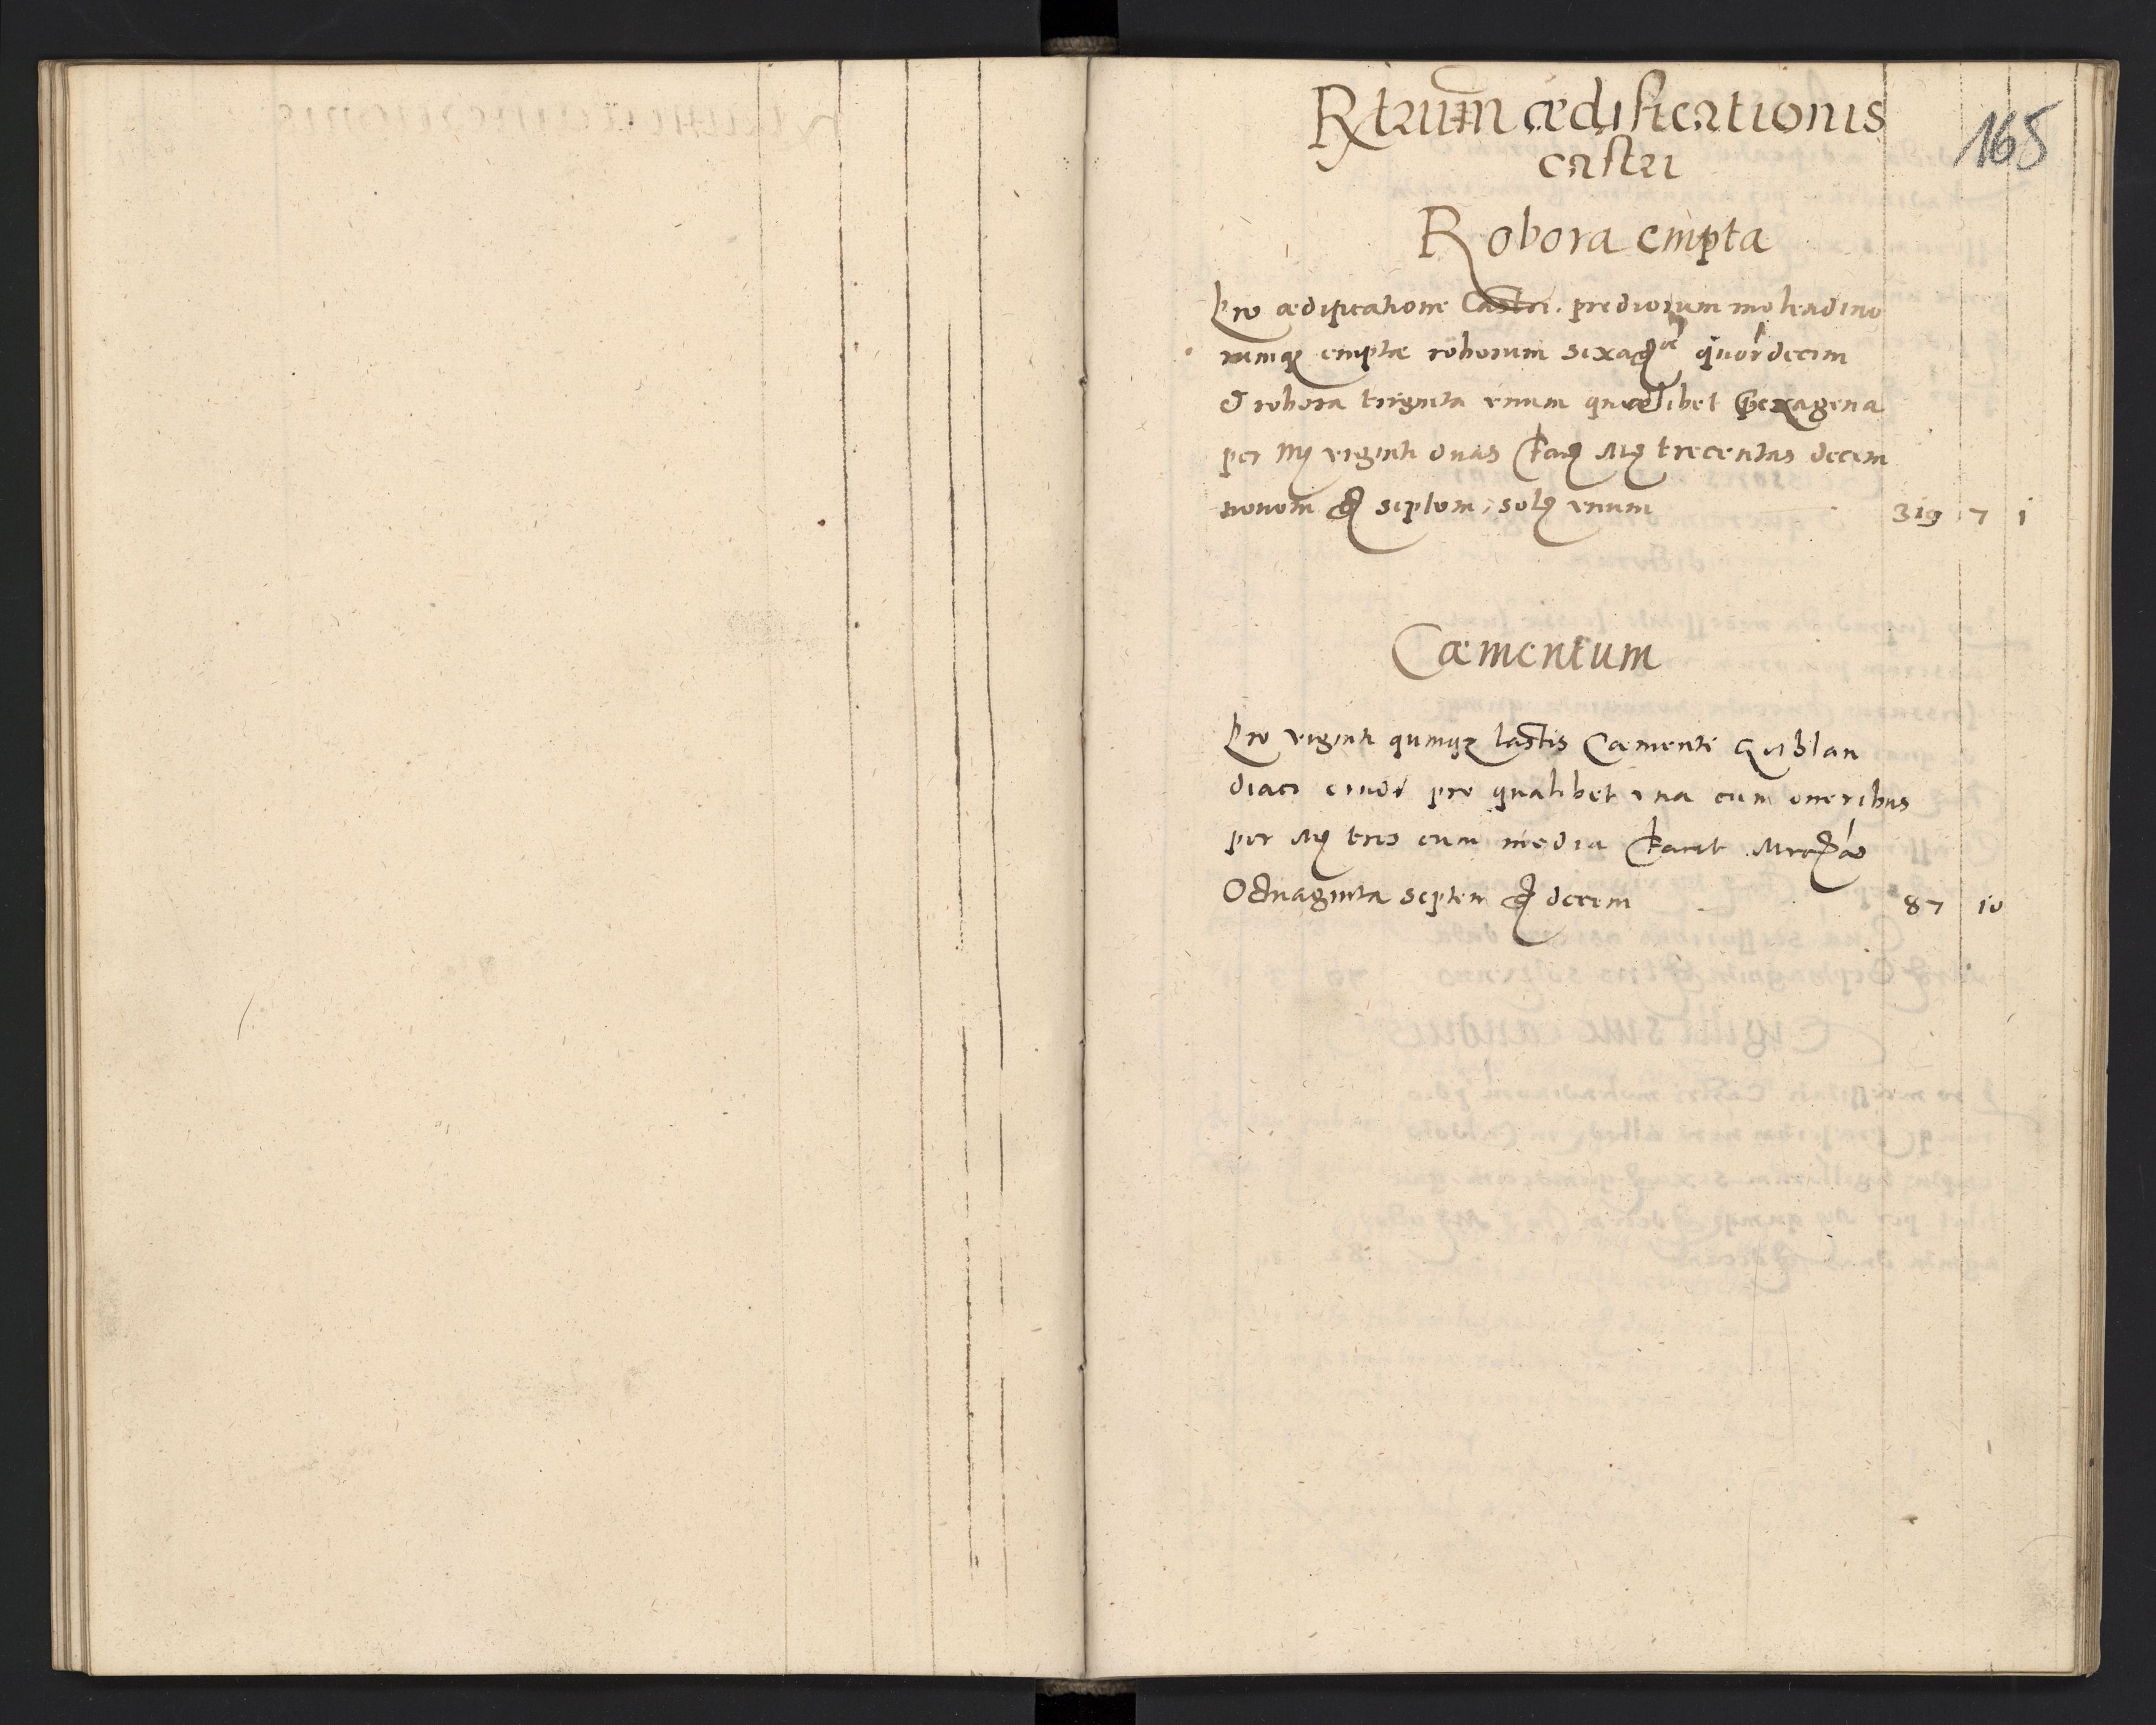 Rerum ædificationis
castri
165
Robora empta
Pro ædificatione Castri. prediorum molendino
rumq; emptæ roborum sexag quordecim
et robora triginta unum quælibet sexagena
per mg viginti duas fac mg trecentas decem
novem g septem, sol unum 319 7 1
Cæmentum
Pro viginti quinq; lastis Cæmenti Gotlan
diaci pro qualibet una cum oneribus
per mg tres cum media facit Mrcas
Octuaginta septem g decem 87 10